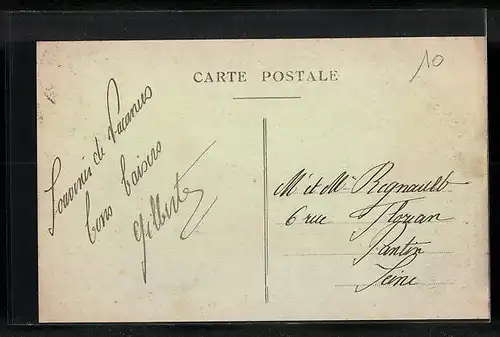 CARTE POSTALE
10
Souvenir de Vacances
bons baisers
Gilberte
Mr et Me Regnault
6 rue Florian
Pantin
Seine